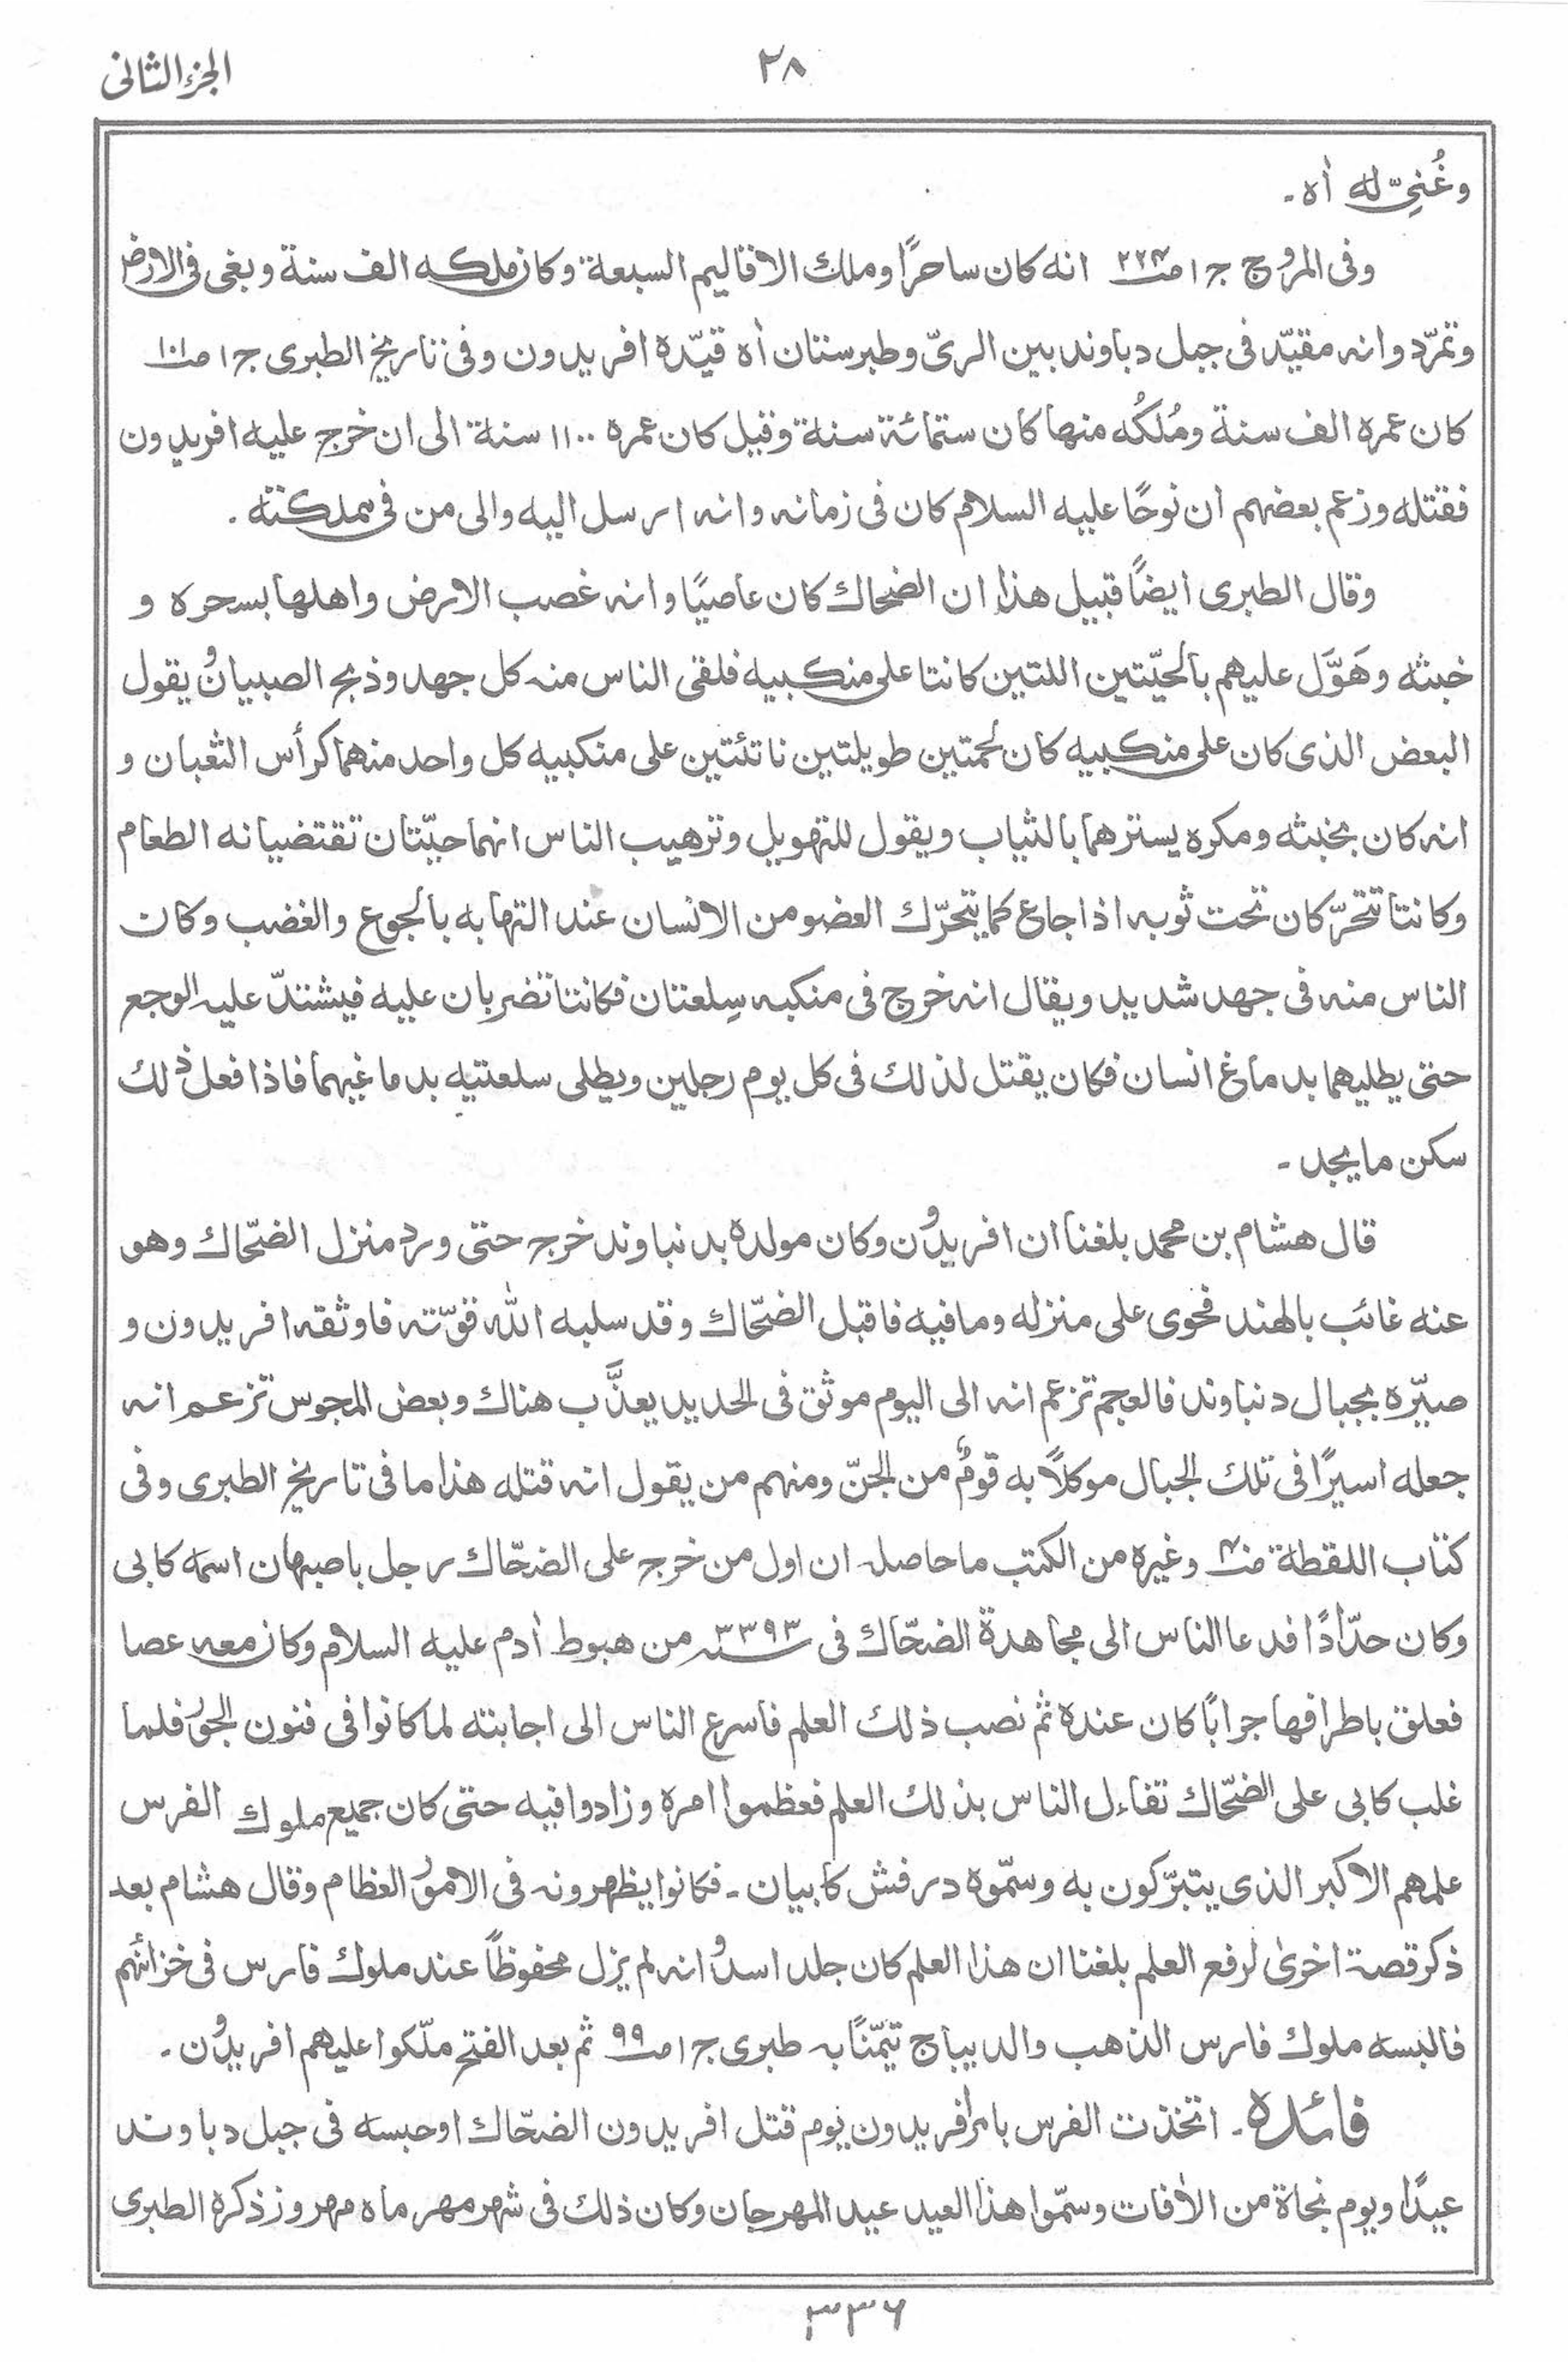 الجزء الثانى
٢٨
وغُنِّىَ له اٰه ـ
وفى المروج ج ١ صـ ٢٢٣ انه كان ساحرًا وملك الاقاليم السبعة وكان ملكه الف سنة وبغى فى الارض
وتمرّد وانه مقيّد فى جبل دباوند بين الرىّ وطبرستان اٰه قيّده افريدون وفى تاريخ الطبرى ج ١ صـ ١٠١
كان عمره الف سنة ومُلكُه منها كان ستمائة سنة وقيل كان عمره ١١٠٠ سنة الى ان خرج عليه افريدون
فقتله وزعم بعضهم ان نوحًا عليه السلام كان فى زمانه وانه ارسل اليه والى من فى مملكته .
وقال الطبرى ايضًا قبيل هذا ان الضحاك كان عاصيًا وانه غصب الارض واهلها بسحره و
خبثه وهَوَّل عليهم بالحيّتين اللتين كانتا على منكبيه فلقى الناس منه كل جهد وذبح الصبيان و يقول
البعض الذى كان على منكبيه كان لحمتين طويلتين ناتئتين على منكبيه كل واحد منهما كرأس الثعبان و
انه كان بخبثه ومكره يسترهما بالثياب ويقول للتهويل وترهيب الناس انهما حيّتان تقتضيانه الطعام
وكانتا تتحرّكان تحت ثوبه اذا جاع كما يتحرّك العضو من الانسان عند التهابه بالجوع والغضب وكان
الناس منه فى جهد شديد ويقال انه خرج فى منكبه سِلعتان فكانتا تضربان عليه فيشتدّ عليه الوجع
حتى يطليهما بدماغ انسان فكان يقتل لذلك فى كل يوم رجلين ويطلى سلعتيه بدماغيهما فاذا فعل ذلك
سكن ما يجد ـ
قال هشام بن محمد بلغنا ان افريدون وكان مولده بدنباوند خرج حتى ورد منزل الضحّاك وهو
عنه غائب بالهند فحوى على منزله وما فيه فاقبل الضحّاك وقد سلبه الله قوّته فاوثقه افريدون و
صيّره بجبال دنباوند فالعجم تزعم انه الى اليوم موثق فى الحديد يعذَّب هناك وبعض المجوس تزعم انه
جعله اسيرًا فى تلك الجبال موكلًا به قومٌ من الجنّ ومنهم من يقول انه قتله هذا ما فى تاريخ الطبرى وفى
كتاب اللقطة وغيره من الكتب ما حاصله ان اول من خرج على الضحّاك رجل باصبهان اسمه كابى
وكان حدّادًا فدعا الناس الى مجاهدة الضحّاك فى سنه ٣٣٩٣ من هبوط اٰدم عليه السلام وكان معه عصا
فعلق باطرافها جرابًا كان عنده ثم نصب ذلك العلم فاسرع الناس الى اجابته لما كانوا فى فنون الجور فلما
غلب كابى على الضحّاك تفاءل الناس بذلك العلم فعظموا امره وزادوا فيه حتى كان جميع ملوك الفرس
علمهم الاكبر الذى يتبرّكون به وسمّوه درفش كابيان ـ فكانوا يظهرونه فى الامور العظام وقال هشام بعد
ذكر قصة اخرىٰ لرفع العلم بلغنا ان هذا العلم كان جلد اسد و انه لم يزل محفوظًا عند ملوك فارس فى خزائنهم
فالبسه ملوك فارس الذهب والديباج تيمّنًا به طبرى ج ١ صـ ٩٩ ثم بعد الفتح ملّكوا عليهم افريدون ـ
فائدة ـ اتخذت الفرس بامر افريدون يوم قتل افريدون الضحّاك او حبسه فى جبل دباوند
عيدًا ويوم نجاة من الاٰفات وسمّوا هذا العيد عيد المهرجان وكان ذلك فى شهر مهر ماه مهر وز ذكره الطبرى
٣٣٦